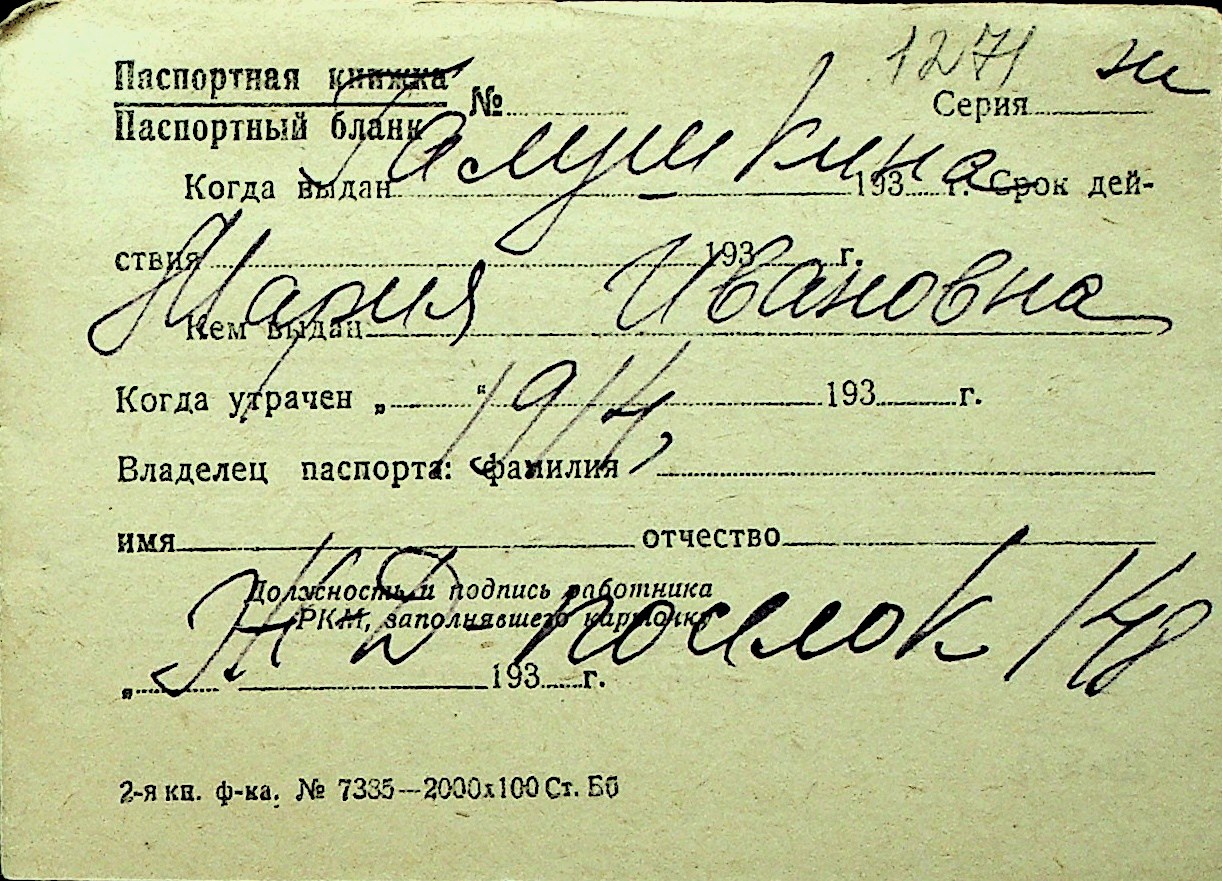 1271 ж
Паспортная книжка
№ Серия
Паспортный бланк
Галушкина
Когда выдан 193 г. Срок дей-
ствия 193 г.
Мария Ивановна
Кем выдан
Когда утрачен „ “ 193 г.
1914
Владелец паспорта: фамилия
имя отчество
Должность и подпись работника
РКМ, заполнявшего карточку
ЖД поселок
„ 193 г.
2-я кп. ф-ка. № 7385—2000х100 Ст. Бб